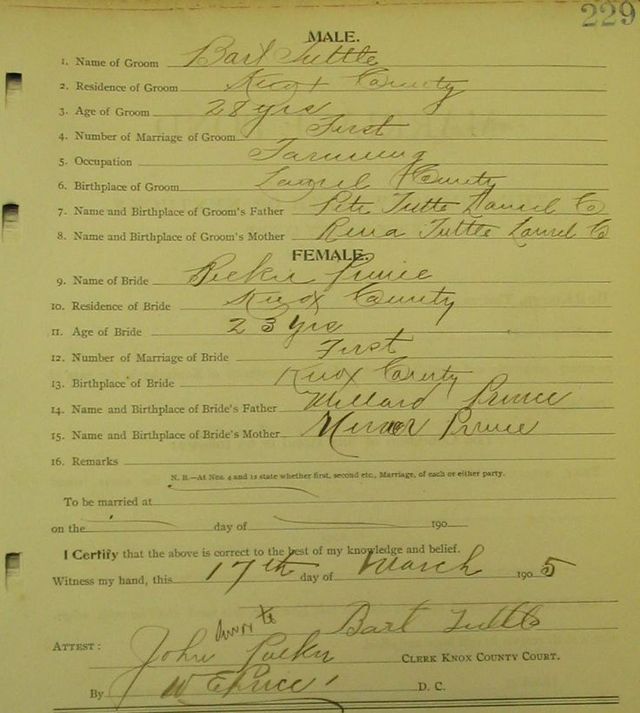 229
MALE.
1. Name of Groom Bart Tuttle
2. Residence of Groom Knox County
3. Age of Groom 28 yrs
4. Number of Marriage of Groom First
5. Occupation Farming
6. Birthplace of Groom Laurel County
7. Name and Birthplace of Groom's Father Pete Tuttle Laurel Co
8. Name and Birthplace of Groom's Mother Rena Tuttle Laurel Co
FEMALE.
9. Name of Bride Prince
10. Residence of Bride Knox County
11. Age of Bride 23 yrs
12. Number of Marriage of Bride First
13. Birthplace of Bride Knox County
14. Name and Birthplace of Bride's Father Millard Prince
15. Name and Birthplace of Bride's Mother Prince
16. Remarks
N. B.—At Nos. 4 and 12 state whether first, second etc., Marriage, of each or either party.
To be married at
on the day of 190
I Certify that the above is correct to the best of my knowledge and belief.
Witness my hand, this 17th day of March 1905
Bart Tuttle
ATTEST: John CLERK KNOX COUNTY COURT.
By D. C.